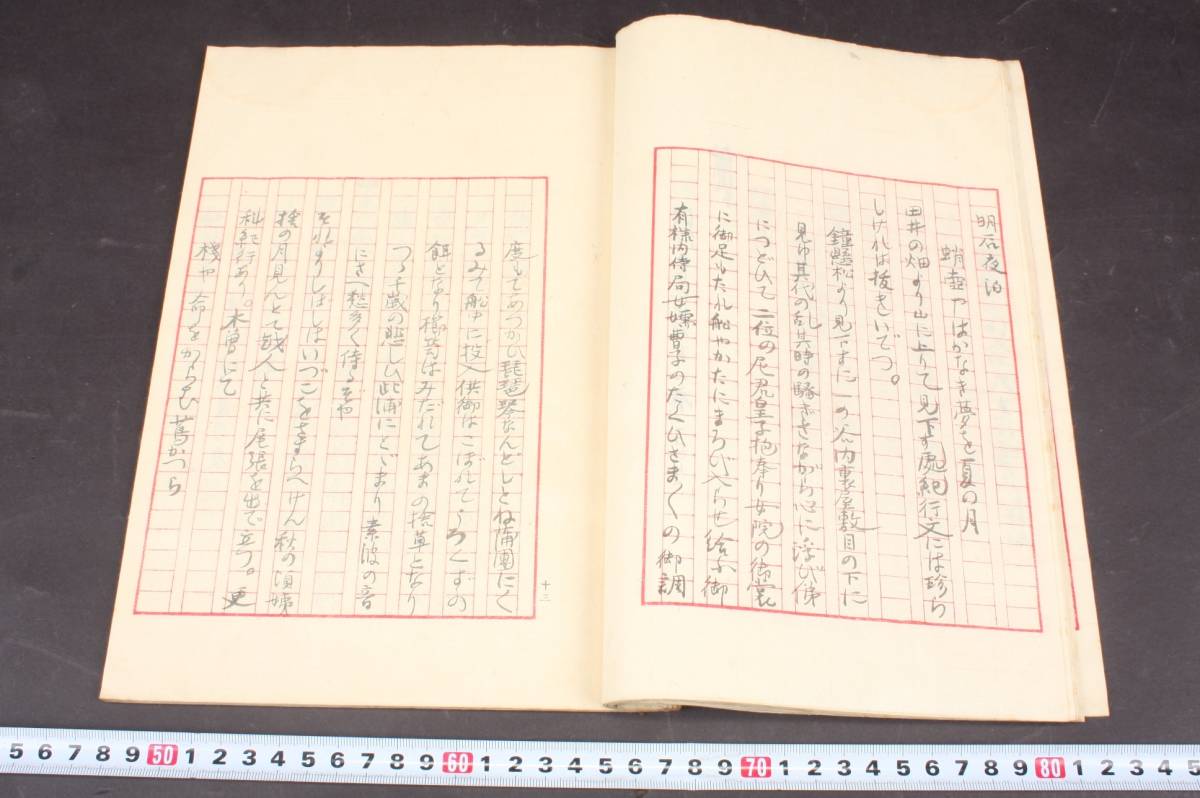 明石夜泊
蛸壺やはかなき夢を夏の月
田井の畑より山に上りて見下す處紀行文には珍ら
しければ抜きいでつ。
鐘懸松より見下すに一の谷内裏屋敷目の下に
見ゆ其代の乱其時の騒ぎさながら心に浮び俤
につどひて二位の尼君皇子抱奉り女院の御裳
に御足もたれ船やかたにまろび入らせ給ふ御
有様内侍局女嬬曹子のたくひさま〱の御調
度もてあつかひ琵琶琴なんどしとね蒲團にく
るみて船中に投入供御はこぼれてうろくずの
餌となり櫛笥はみだれてあまの捨草となり
つゝ千歳の悲しひ此浦にとゞまり素波の音
にさへ愁多く侍るぞや
それよりしはしはいづこをさすらへけん秋の頃姨
捨の月見んとて越人と共に尾張を出で立つ。更
科紀行あり。木曽にて
棧や命をからむ蔦かつら
十三
5 6 7 8 9 50 1 2 3 4 5 6 7 8 9 60 1 2 3 4 5 6 7 8 9 70 1 2 3 4 5 6 7 8 9 80 1 2 3 4 5